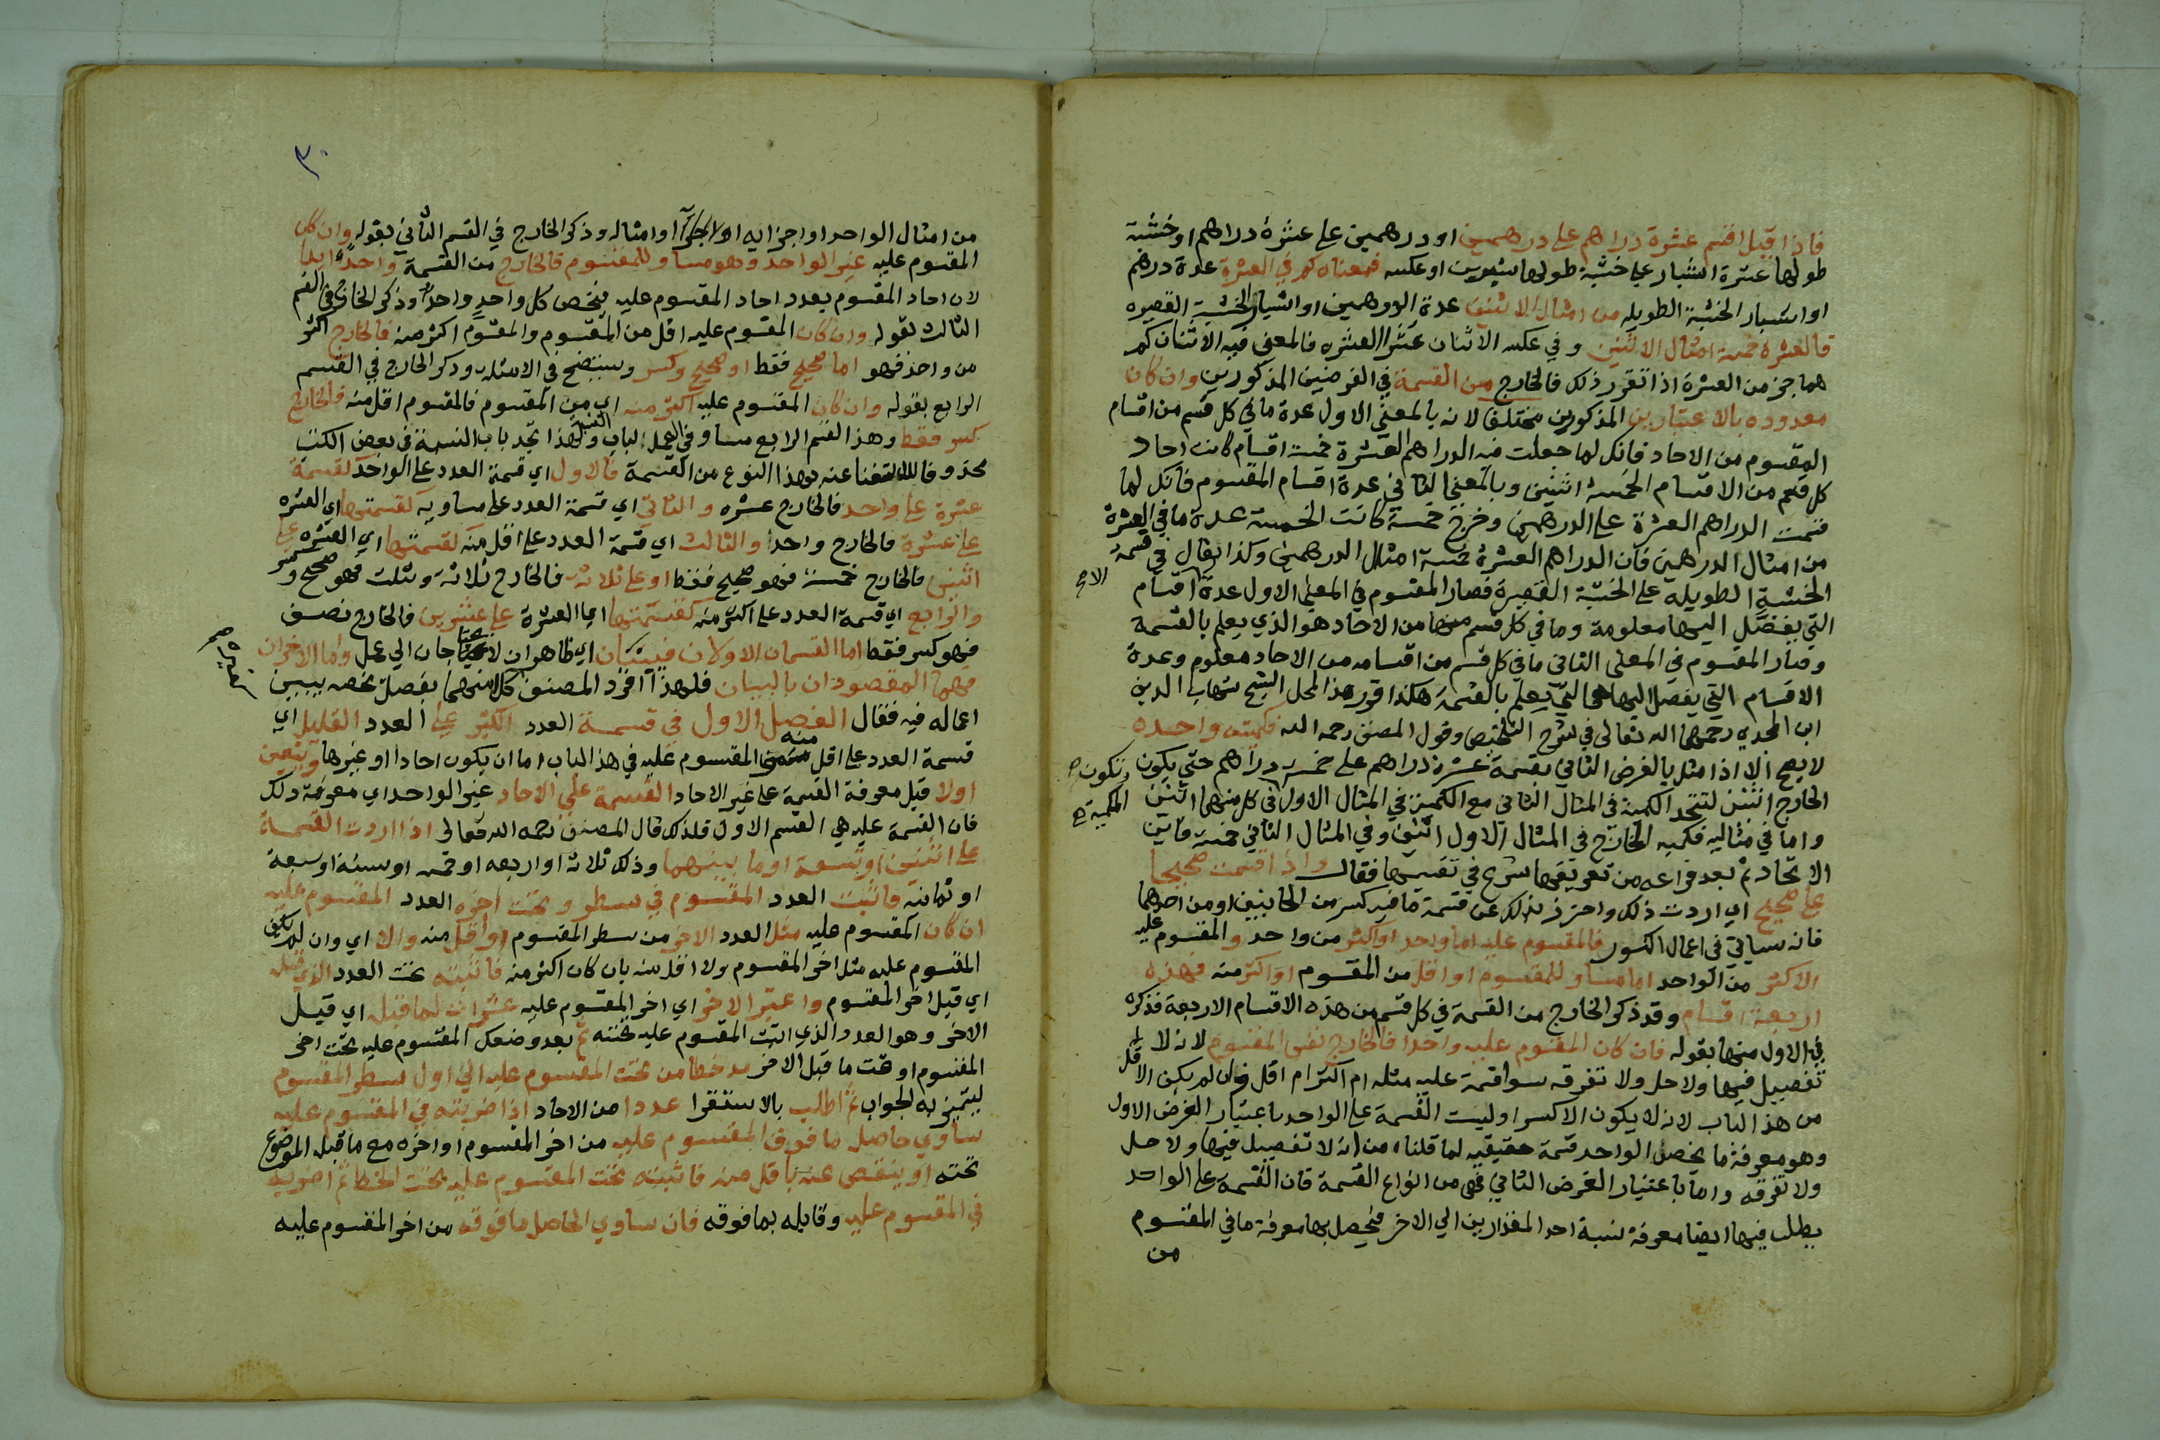 فاذا قيل اقسم عشرة دراهم على درهمين او درهمين على عشرة دراهم او خشبة
طولها عشرة اشبار على خشبة طولها شبرين او عكسه فمعناه كم في العشرة عدة درهم
او اشبار الخشبة الطويله من امثال الاثنين عدة الدرهمين او اشبار الخشبة القصيره
فالعشرة خمسة امثال الاثنين وفي عكسه الاثنان عشرا العشره فالمعنى فيه الاثنان كم
هما جزء من العشرة اذا تقرر ذلك فالخارج من القسمة في الغرضين المذكورين وان كان
معدوده بالاعتبارين المذكورين مختلفا لانه بالمعنى الاول عدة ما في كل قسم من اقسام
المقسوم من الاحاد فانك لما جعلت فيه الدراهم العشرة خمسة اقسام كانت احاد
كل قسم من الاقسام الخمسة اثنين وبالمعنى الثاني عدة اقسام المقسوم فانك لما
قسمت الدراهم العشرة على الدرهمين وخرج خمسة كانت الخمسة عدة ما في العشرة
من امثال الدرهمين فان الدراهم العشرة خمسة امثال الدرهمين وكذا يقال في قسمة
الخشبة الطويله على الخشبة القصيرة فصار المقسوم في المعنى الاول عدة اقسام
التي يفصل اليها معلومة وما في كل قسم منها من الاحاد هو الذي يعلم بالقسمة
وصار المقسوم في المعنى الثاني ما في كل قسم من اقسامه من الاحاد معلوم وعدة
الاقسام التي يفصل اليها هي التي يعلم بالقسمة هكذا قرر هذا المحل الشيخ شهاب الدين
ابن المجدي رحمهما الله تعالى في شرح التلخيص وقول المصنف رحمه الله فكميته واحده
لا يصح الا اذا مثل بالغرض الثاني بقسمة عشرة دراهم على خمسة دراهم حتى يكون
الخارج اثنين لتتحد الكمية في المثال الثاني مع الكمية في المثال الاول في كل منهما اثنين
واما في مثاليه فكميه الخارج في المثال الاول اثنين وفي المثال الثاني خمسة فاين
الاتحاد ثم بعد فراغه من تعريفها شرع في تقسيمها فقال واذا قسمت صحيحا
على صحيح اي اردت ذلك واحترز بذلك عن قسمة ما فيه كسر من الجانبين او من احدهما
فانه سياتي في اعمال الكسور فالمقسوم عليه اما واحد او اكثر من واحد والمقسوم عليه
الاكثر من الواحد اما مساو للمقسوم او اقل من المقسوم او اكثر منه فهذه
اربعة اقسام وقد ذكر الخارج من القسمة في كل قسم من هذه الاقسام الاربعة فذكره
في الاول منها بقوله فان كان المقسوم عليه واحدا فالخارج نفس المقسوم لانه لا
تفصيل فيها ولا حل ولا تفرقه سوا قسمة عليه مثله ام اكثر ام اقل وان لم يكن الاقل
من هذا الباب لانه لا يكون الا كسرا وليست القسمة على الواحد باعتبار الغرض الاول
وهو معرفة ما يخص الواحد قسمة حقيقيه لما قلناه من انه لا تفصيل فيها ولا حل
ولا تفرقه واما باعتبار الغرض الثاني فهي من انواع القسمة فان القسمة على الواحد
يطلب فيها ايضا معرفة نسبة احد المقدارين الى الاخر فيحصل بها معرفة ما في المقسوم
من
وتكون
الكمية
٣٠
من امثال الواحد او اجزايه او امثاله وذكر الخارج في القسم الثاني بقوله وان كان
المقسوم عليه غير الواحد وهو مساو للمقسوم فالخارج من القسمة واحدا ابدا
لان احاد المقسوم بعدد احاد المقسوم عليه فيخص كل واحد واحدا وذكر الخارج في القسم
الثالث بقوله وان كان المقسوم عليه اقل من المقسوم والمقسوم اكثر منه فالخارج اكثر
من واحد فهو اما صحيح فقط او صحيح وكسر وسيتضح في الامثلة وذكر الخارج في القسم
الرابع بقوله وان كان المقسوم عليه اكثر منه اي من المقسوم فالمقسوم اقل منه فالخارج
كسر فقط وهذا القسم الرابع مساو في العمل لباب ولهذا تجد باب النسبة في بعض الكتب
محذوفا عنه بهذا النوع من القسمة فالاول اي قسمة العدد على الواحد كقسمة
عشرة على واحد فالخارج عشره والثاني اي قسمة العدد على مساويه كقسمتها اي العشره
على عشرة فالخارج واحد والثالث اي قسمة العدد على اقل منه كقسمتها اي العشره على
اثنين فالخارج خمسة فهو صحيح فقط او على ثلاثة فالخارج ثلاثة وثلث فهو صحيح وكسر
والرابع اي قسمة العدد على اكثر منه كقسمتها اي العشرة على عشرين فالخارج نصف
فهو كسر فقط اما القسمان الاولان فبينان اي ظاهران لا يحتاجان الى عمل واما الاخران
فهما المقصودان بالبيان فلهذا افرد المصنف كلا منهما بفصل يخصه يبين
اعماله فيه فقال الفصل الاول في قسمة العدد الكثير على العدد القليل اي
قسمة العدد على اقل منه المقسوم عليه في هذا الباب اما ان يكون احادا او غيرها ويتعين
اولا قبل معرفة القسمة على غير الاحاد القسمة على الاحاد غير الواحد اي معرفة ذلك
فان القسمة عليه هي القسم الاول فلذلك قال المصنف رحمه الله تعالى اذا اردت القسمة
على اثنين او تسعة او ما بينهما وذلك ثلاثة او اربعه او خمسه او ستة او سبعة
او ثمانية فاثبت العدد المقسوم في سطر وتحت اخره العدد المقسوم عليه
ان كان المقسوم عليه مثل العدد الاخر من سطر المقسوم او اقل منه والا اي وان لم يكن
المقسوم عليه مثل اخر المقسوم ولا اقل منه بان كان اكثر منه فاثبته تحت العدد الذي قبله
اي قبل اخر المقسوم واعتبر الاخر اي اخر المقسوم عليه عشرات لما قبله اي قبل
الاخر وهو العدد الذي اثبت المقسوم عليه تحته ثم بعد وضعك المقسوم عليه تحت اخر
المقسوم او تحت ما قبل الاخر مد خطا من تحت المقسوم عليه الى اول سطر المقسوم
ليتميز به الجواب ثم اطلب بالاستقرا عددا من الاحاد اذا ضربته في المقسوم عليه
ساوي حاصل ما فوق المقسوم عليه من اخر المقسوم او اخره مع ما قبله الموضوع
تحته او ينقص عنه باقل منه فاثبته تحت المقسوم عليه تحت الخط ثم اضربه
في المقسوم عليه وقابله بما فوقه فان ساوي الحاصل ما فوقه من اخر المقسوم عليه